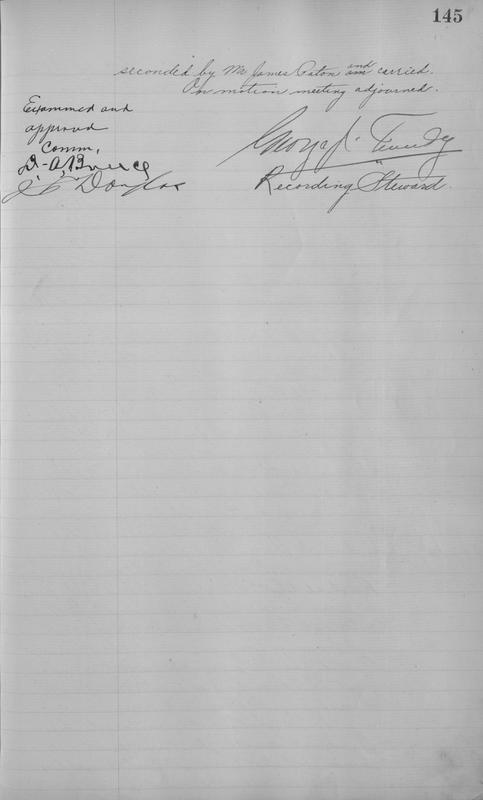 145
seconded by Mr James Paton and carried.
On motion meeting adjourned.
Examined and
approved
Comm,
D. A. Bruce
J. F. Douglas
George J.
Recording Steward.